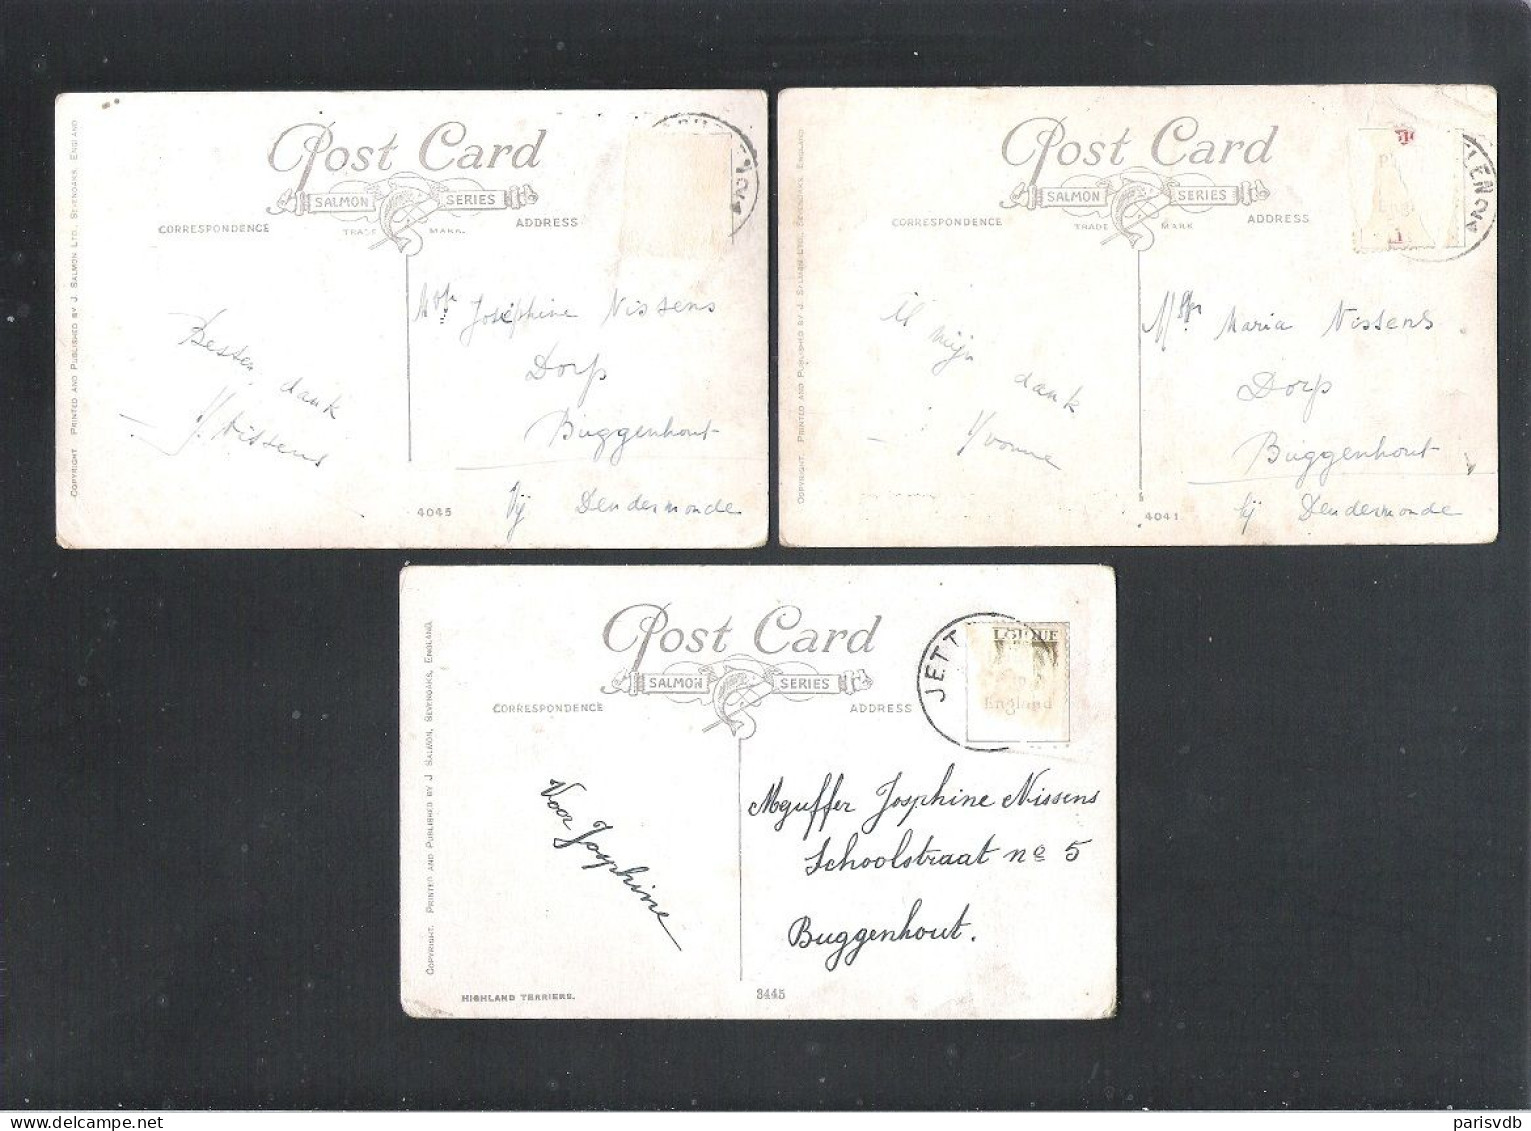 Post Card
SALMON SERIES
TRADE MARK.
CORRESPONDENCE
ADDRESS
COPYRIGHT. PRINTED AND PUBLISHED BY J. SALMON LTD., SEVENOAKS, ENGLAND
Besten dank
Y. Nissens
Josephine Nissens
Dorp
Buggenhout
bij Dendermonde
4045
Post Card
SALMON SERIES
TRADE MARK
CORRESPONDENCE
ADDRESS
COPYRIGHT. PRINTED AND PUBLISHED BY J. SALMON LTD., SEVENOAKS, ENGLAND
mijn dank
Yvonne
Maria Nissens
Dorp
Buggenhout
bij Dendermonde
4041
Post Card
SALMON SERIES
CORRESPONDENCE
ADDRESS
COPYRIGHT. PRINTED AND PUBLISHED BY J SALMON, SEVENOAKS, ENGLAND.
JETT
England
Voor Josephine
Mejuffer Josephine Nissens
Schoolstraat no 5
Buggenhout.
HIGHLAND TERRIERS.
3445
parisvdb